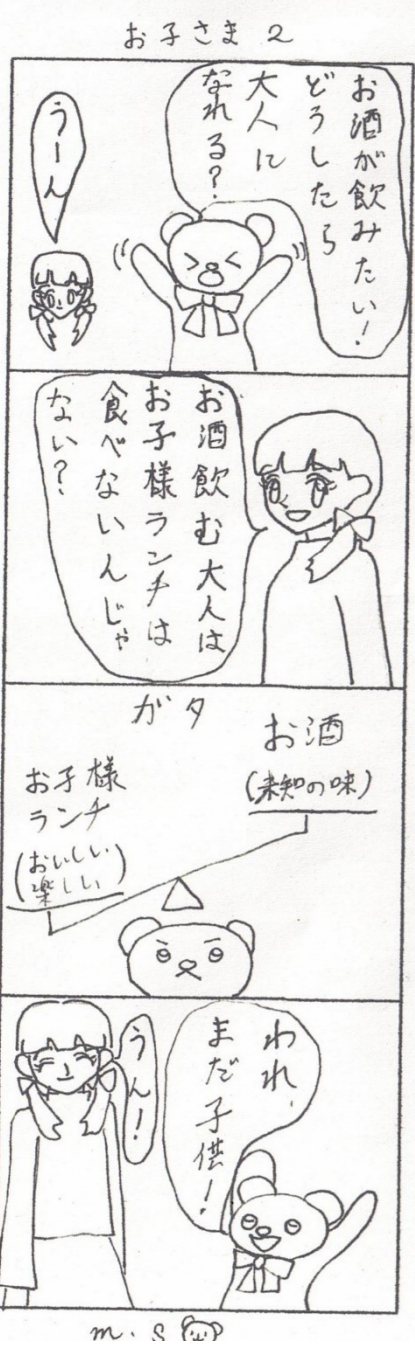 お子さま 2
お酒が飲みたい！
どうしたら
大人に
なれる？
うーん
お酒飲む大人は
お子様ランチは
食べないんじゃ
ない？
ガタ
お酒
(未知の味)
お子様
ランチ
(おいしい
楽しい)
われ、
まだ子供！
うん！
m.s